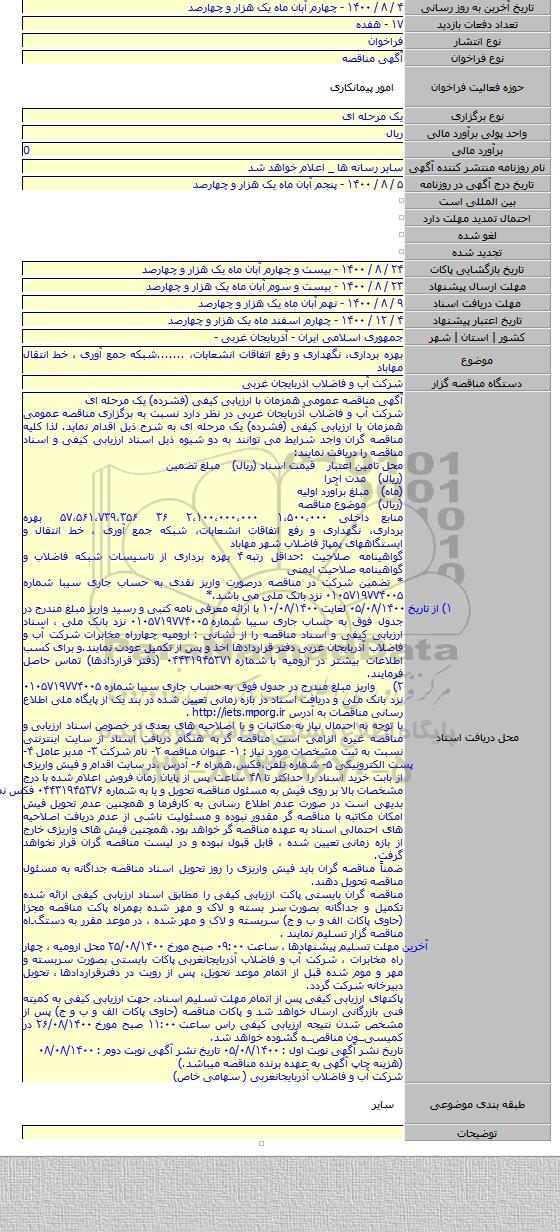 تاریخ آخرین به روز رسانی ۴ / ۸ / ۱۴۰۰ - چهارم آبان ماه یک هزار و چهارصد
تعداد دفعات بازدید ۱۷ - هفده
نوع انتشار فراخوان
نوع فراخوان آگهی مناقصه
حوزه فعالیت فراخوان امور پیمانکاری
نوع برگزاری یک مرحله ای
واحد پولی برآورد مالی ریال
برآورد مالی 0
نام روزنامه منتشر کننده آگهی سایر رسانه ها _ اعلام خواهد شد
تاریخ درج آگهی در روزنامه ۵ / ۸ / ۱۴۰۰ - پنجم آبان ماه یک هزار و چهارصد
بین المللی است
احتمال تمدید مهلت دارد
لغو شده
تجدید شده
تاریخ بازگشایی پاکات ۲۴ / ۸ / ۱۴۰۰ - بیست و چهارم آبان ماه یک هزار و چهارصد
مهلت ارسال پیشنهاد ۲۳ / ۸ / ۱۴۰۰ - بیست و سوم آبان ماه یک هزار و چهارصد
مهلت دریافت اسناد ۹ / ۸ / ۱۴۰۰ - نهم آبان ماه یک هزار و چهارصد
تاریخ اعتبار پیشنهاد ۴ / ۱۲ / ۱۴۰۰ - چهارم اسفند ماه یک هزار و چهارصد
کشور | استان | شهر جمهوری اسلامی ایران - آذربایجان غربی -
موضوع بهره برداری، نگهداری و رفع اتفاقات انشعابات، .......شبکه جمع آوری ، خط انتقال
مهاباد
دستگاه مناقصه گزار شرکت آب و فاضلاب آذربایجان غربی
محل دریافت اسناد
آگهی مناقصه عمومی همزمان با ارزیابی کیفی (فشرده) یک مرحله ای
شرکت آب و فاضلاب آذربایجان غربی در نظر دارد نسبت به برگزاری مناقصه عمومی
همزمان با ارزیابی کیفی (فشرده) یک مرحله ای به شرح ذیل اقدام نماید. لذا کلیه
مناقصه گران واجد شرایط می توانند به دو شیوه ذیل اسناد ارزیابی کیفی و اسناد
مناقصه را دریافت نمایند:
محل تامین اعتبار قیمت اسناد (ریال) مبلغ تضمین
(ریال) مدت اجرا
(ماه) مبلغ برآورد اولیه
(ریال) موضوع مناقصه
منابع داخلی ۱،۵۰۰،۰۰۰ ۲،۱۰۰،۰۰۰،۰۰۰ ۳۶ ۵۷،۵۶۱،۷۳۹،۲۵۶ بهره
برداری، نگهداری و رفع اتفاقات انشعابات، شبکه جمع آوری ، خط انتقال و
ایستگاههای پمپاژ فاضلاب شهر مهاباد
گواهینامه صلاحیت :حداقل رتبه ۴ بهره برداری از تاسیسات شبکه فاضلاب و
گواهینامه صلاحیت ایمنی
* تضمین شرکت در مناقصه درصورت واریز نقدی به حساب جاری سیبا شماره
۰۱۰۵۷۱۹۷۷۴۰۰۵ نزد بانک ملی می باشد.*
۱) از تاریخ ۰۵/۰۸/۱۴۰۰ لغایت ۱۰/۰۸/۱۴۰۰ با ارائه معرفی نامه کتبی و رسید واریز مبلغ مندرج در
جدول فوق به حساب جاری سیبا شماره ۰۱۰۵۷۱۹۷۷۴۰۰۵ نزد بانک ملی ، اسناد
ارزیابی کیفی و اسناد مناقصه را از نشانی : ارومیه چهارراه مخابرات شرکت آب و
فاضلاب آذربایجان غربی دفتر قراردادها اخذ و پس از تکمیل عودت نمایند.و برای کسب
اطلاعات بیشتر در ارومیه با شماره ۰۴۴۳۱۹۴۵۳۷۱ (دفتر قراردادها) تماس حاصل
فرمایند.
۲) واریز مبلغ مندرج در جدول فوق به حساب جاری سیبا شماره ۰۱۰۵۷۱۹۷۷۴۰۰۵
نزد بانک ملی و دریافت اسناد در بازه زمانی تعیین شده در بند یک از پایگاه ملی اطلاع
رسانی مناقصات به آدرس http://iets.mporg.ir .
با توجه به احتمال نیاز به مکاتبات و یا اصلاحیه های بعدی در خصوص اسناد ارزیابی و
مناقصه غیره الزامی است مناقصه گر به هنگام دریافت اسناد از سایت اینترنتی
نسبت به ثبت مشخصات مورد نیاز : ۱- عنوان مناقصه ۲- نام شرکت ۳- مدیر عامل ۴-
پست الکترونیکی ۵- شماره تلفن،فکس،همراه ۶- آدرس ،در سایت اقدام و فیش واریزی
از بابت خرید اسناد را حداکثر تا ۴۸ ساعت پس از پایان زمان فروش اعلام شده با درج
مشخصات بالا بر روی فیش به مسئول مناقصه تحویل و یا به شماره ۰۴۴۳۱۹۴۵۳۷۶ فکس
بدیهی است در صورت عدم اطلاع رسانی به کارفرما و همچنین عدم تحویل فیش
امکان مکاتبه با مناقصه گر مقدور نبوده و مسئولیت ناشی از عدم دریافت اصلاحیه
های احتمالی اسناد به عهده مناقصه گر خواهد بود. همچنین فیش های واریزی خارج
از بازه زمانی تعیین شده ، قابل قبول نبوده و در لیست مناقصه گران قرار نخواهد
گرفت.
ضمناً مناقصه گران باید فیش واریزی را روز تحویل اسناد مناقصه جداگانه به مسئول
مناقصه تحویل دهند.
مناقصه گران بایستی پاکت ارزیابی کیفی را مطابق اسناد ارزیابی کیفی ارائه شده
تکمیل و جداگانه بصورت سر بسته و لاک و مهر شده بهمراه پاکت مناقصه مجزا
(حاوی پاکات الف و ب و ج) سربسته و لاک و مهر شده ، در موعد مقرر به دستگـاه
مناقصه گزار تسلیم نمایند .
آخرین مهلت تسلیم پیشنهادها ، ساعت ۰۹:۰۰ صبح مورخ ۲۵/۰۸/۱۴۰۰ محل ارومیه ، چهار
راه مخابرات ، شرکت آب و فاضلاب آذربایجانغربی پاکات بایستی بصورت سربسته و
مهر و موم شده قبل از اتمام موعد تحویل، پس از رویت در دفترقراردادها ، تحویل
دبیرخانه شرکت گردد.
پاکتهای ارزیابی کیفی پس از اتمام مهلت تسلیم اسناد، جهت ارزیابی کیفی به کمیته
فنی بازرگانی ارسال خواهد شد و پاکات مناقصه (حاوی پاکات الف و ب و ج) پس از
مشخص شدن نتیجه ارزیابی کیفی راس ساعت ۱۱:۰۰ صبح مورخ ۲۶/۰۸/۱۴۰۰ در
کمیسیــون مناقصــه گشوده خواهد شد.
تاریخ نشر آگهی نوبت اول : ۰۵/۰۸/۱۴۰۰ تاریخ نشر آگهی نوبت دوم : ۰۸/۰۸/۱۴۰۰
(هزینه چاپ آگهی به عهده برنده مناقصه میباشد.)
شرکت آب و فاضلاب آذربایجانغربی ( سهامی خاص)
طبقه بندی موضوعی سایر
توضیحات